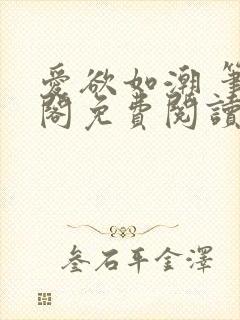 愛欲如潮 筆
閣免費閱讀
叁石平金澤